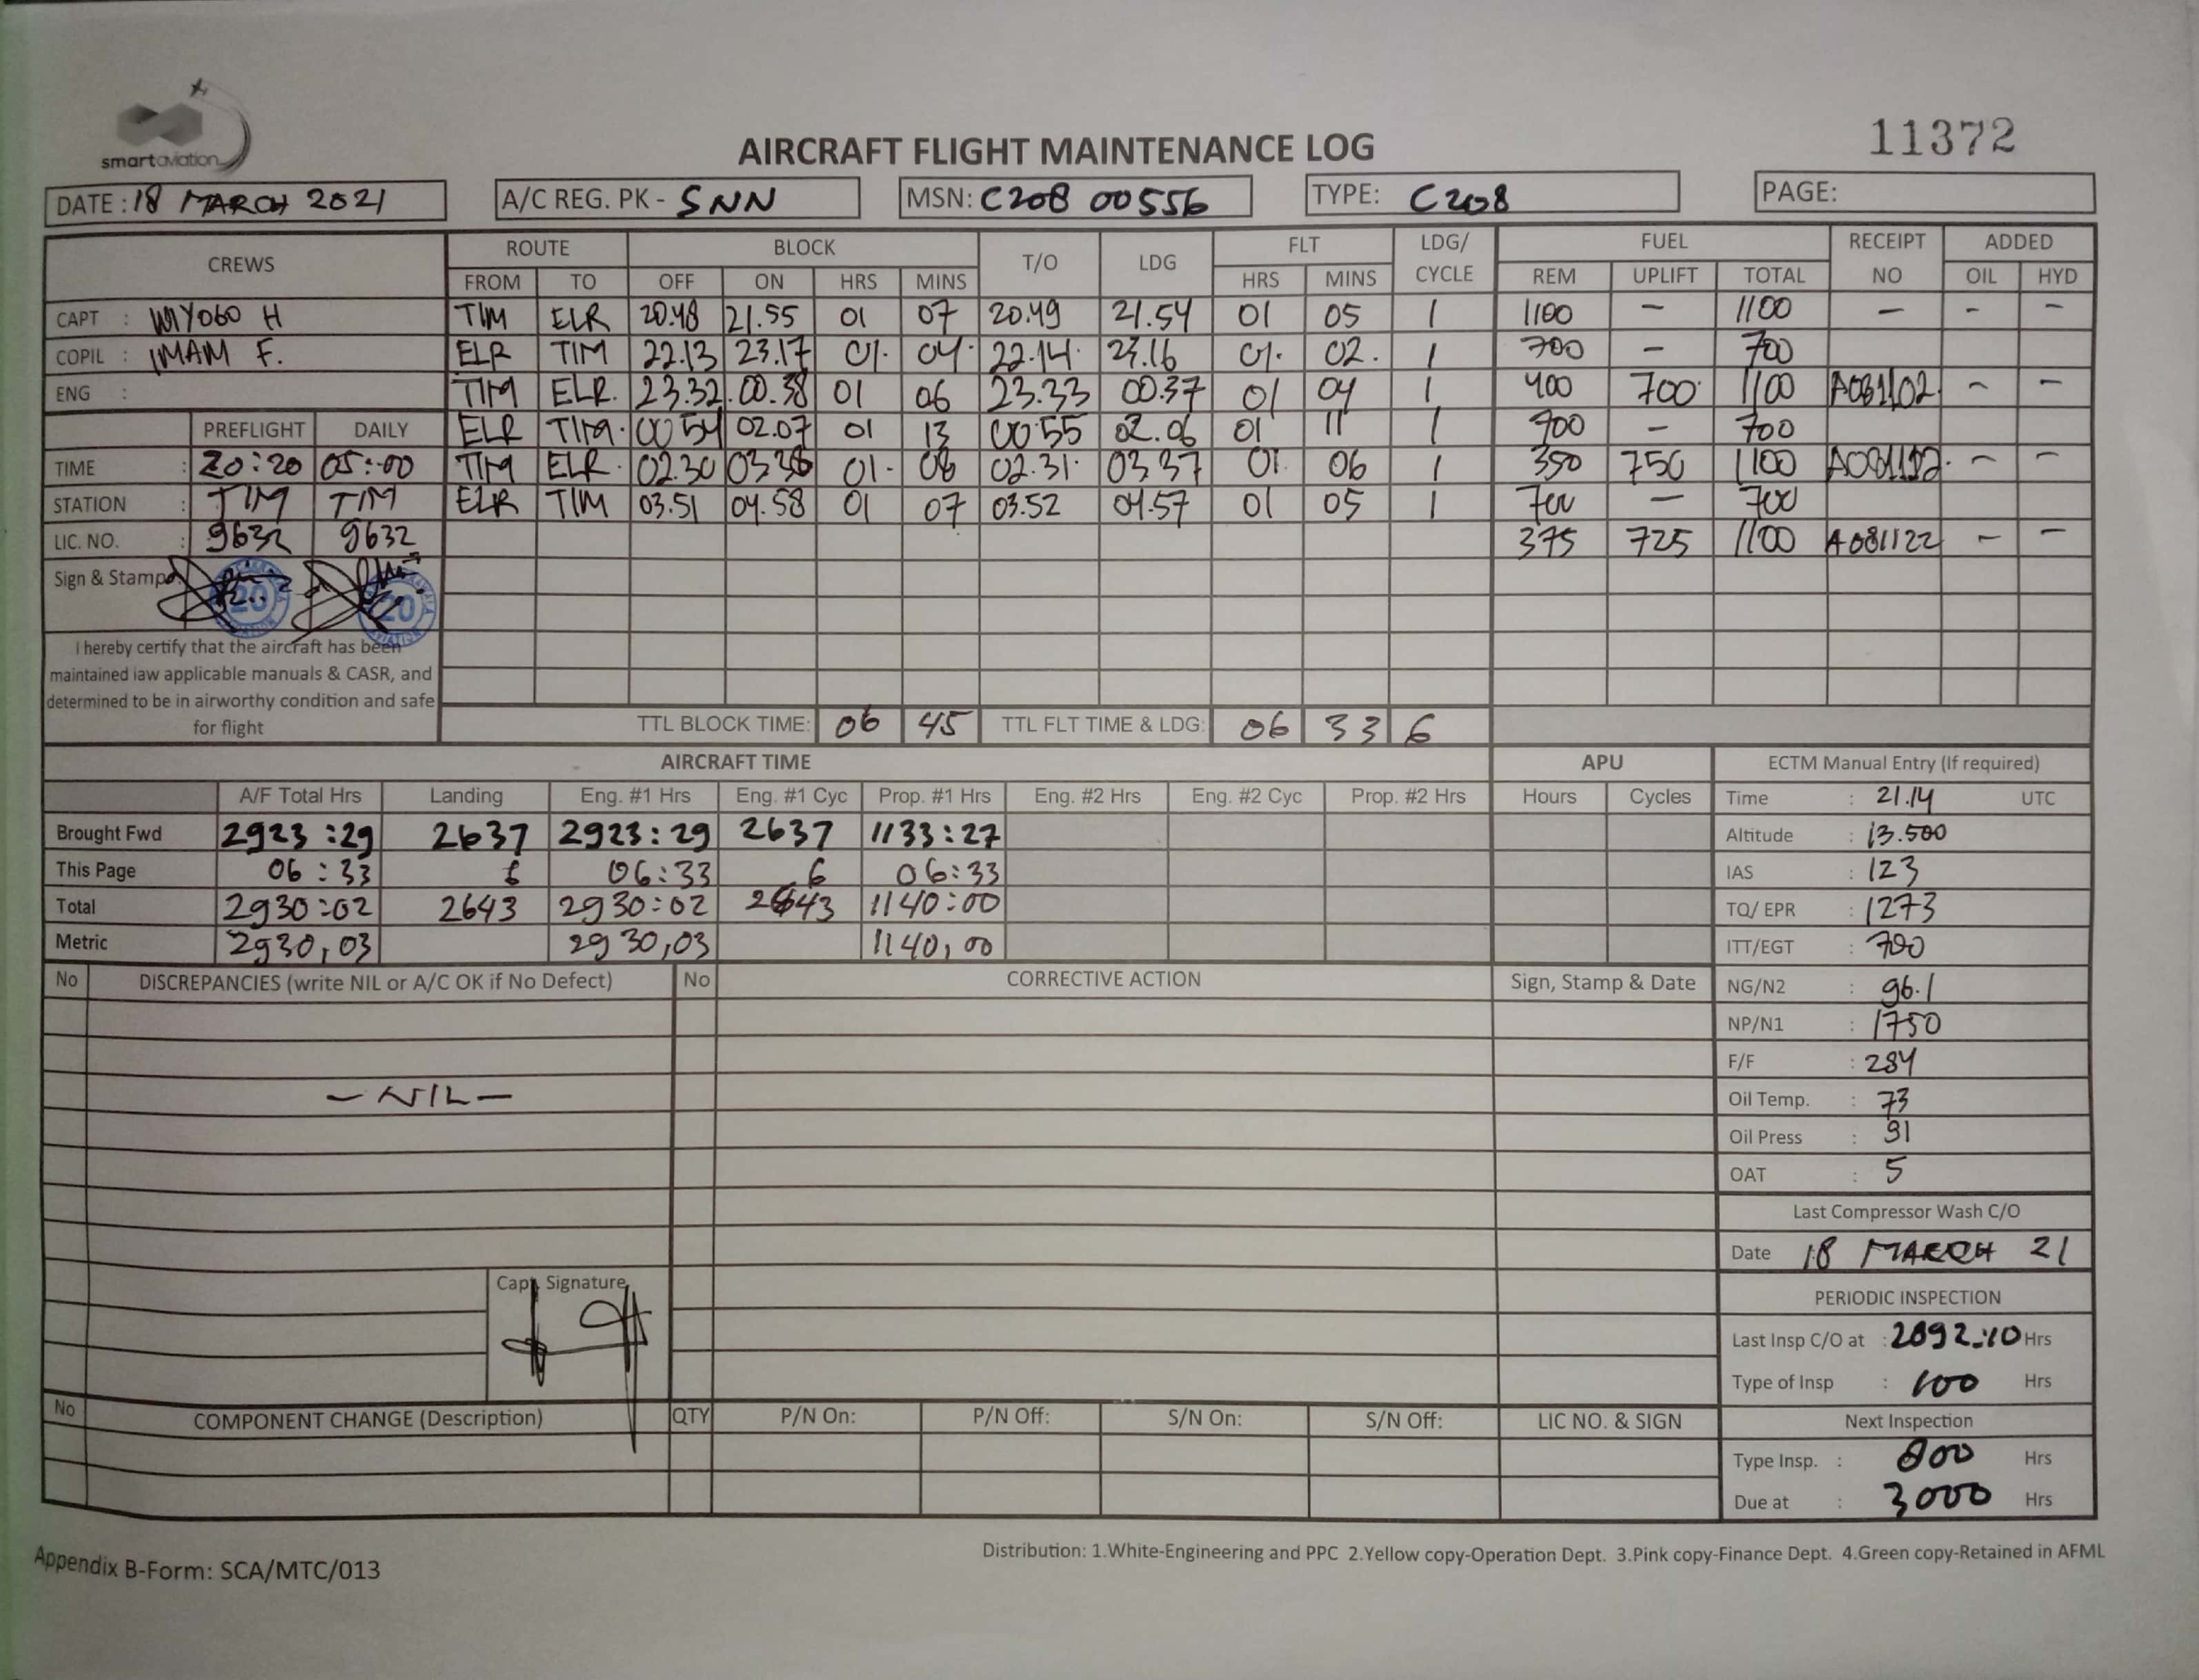 smartaviation
11372
AIRCRAFT FLIGHT MAINTENANCE LOG
DATE : 18 MARCH 2021 A/C REG. PK - SNN MSN: C208 00556 TYPE: C208 PAGE:
CREWS ROUTE BLOCK T/O LDG FLT LDG/ CYCLE FUEL RECEIPT NO ADDED
FROM TO OFF ON HRS MINS HRS MINS REM UPLIFT TOTAL OIL HYD
CAPT : WIYOGO H TIM ELR 20.48 21.55 01 07 20.49 21.54 01 05 1 1100 - 1100 - - -
COPIL : IMAM F. ELR TIM 22.13 23.17 01. 04. 22.14. 23.16 01. 02. 1 700 - 700
ENG : TIM ELR. 23.32. 00.38 01 06 23.33 00.37 01 04 1 400 700. 1100 A081102. - -
PREFLIGHT DAILY ELR TIM. 00 54 02.07 01 13 00 55 02.06 01 11 1 700 - 700
TIME : 20:20 05:00 TIM ELR. 02.30 03 38 01. 08 02.31. 03 37 01. 06 1 350 750 1100 - -
STATION : TIM TIM ELR TIM 03.51 04.58 01 07 03.52 04.57 01 05 1 700 - 700
LIC. NO. : 9632 9632 375 725 1100 A081122 - -
Sign & Stamp
20 20
I hereby certify that the aircraft has been
maintained iaw applicable manuals & CASR, and
determined to be in airworthy condition and safe
for flight
TTL BLOCK TIME: 06 45 TTL FLT TIME & LDG: 06 33 6
AIRCRAFT TIME APU ECTM Manual Entry (If required)
A/F Total Hrs Landing Eng. #1 Hrs Eng. #1 Cyc Prop. #1 Hrs Eng. #2 Hrs Eng. #2 Cyc Prop. #2 Hrs Hours Cycles Time : 21.14 UTC
Brought Fwd 2923:29 2637 2923:29 2637 1133:27 Altitude : 13.500
This Page 06:33 6 06:33 6 06:33 IAS : 123
Total 2930:02 2643 2930:02 2643 1140:00 TQ/ EPR : 1273
Metric 2930,03 2930,03 1140,00 ITT/EGT : 700
No DISCREPANCIES (write NIL or A/C OK if No Defect) No CORRECTIVE ACTION Sign, Stamp & Date NG/N2 : 96.1
NP/N1 : 1750
F/F : 284
- NIL - Oil Temp. : 73
Oil Press : 91
OAT : 5
Last Compressor Wash C/O
Date 18 MARCH 21
Capt. Signature
PERIODIC INSPECTION
Last Insp C/O at : 2892:10 Hrs
Type of Insp : 100 Hrs
No COMPONENT CHANGE (Description) QTY P/N On: P/N Off: S/N On: S/N Off: LIC NO. & SIGN Next Inspection
Type Insp. : 800 Hrs
Due at : 3000 Hrs
Appendix B-Form: SCA/MTC/013
Distribution: 1.White-Engineering and PPC 2.Yellow copy-Operation Dept. 3.Pink copy-Finance Dept. 4.Green copy-Retained in AFML